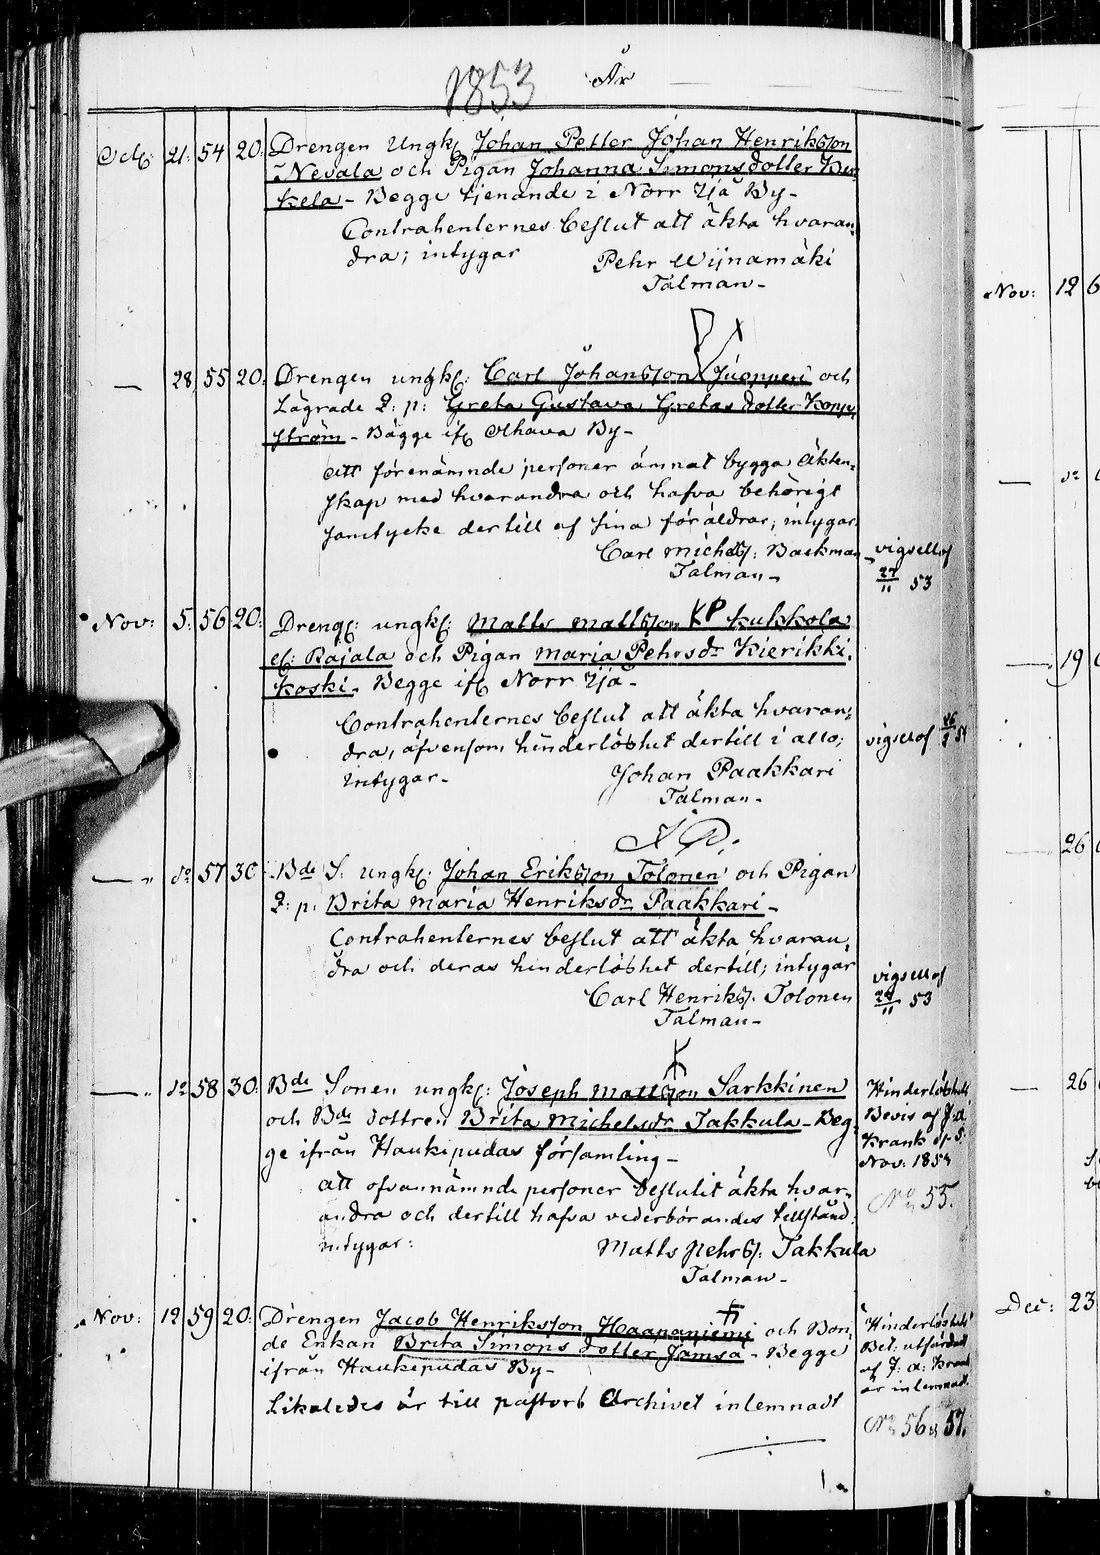 1853 År
Oct: 21. 54 20. Drengen Ungk: Johan Petter Johan Henriksson
Nevala och Pigan Johanna Simonsdotter
kela - Begge tjenande i Norr Ijå By -
Contrahenternes beslut att äkta hvaran-
dra; intygar Pehr Wijnamäki
Talman -
— 28 55 20. Drengen ungk: Carl Johansson Juopperi och
Lägrade Q: p: Greta Gustava Gretas dotter Kopp
ström - Bägge ifr Olhava By -
Att förenämnde personer ämnat bygga Äkten-
skap med hvarandra och hafva behörigt
samtycke dertill af sina föräldrar, intygar
Carl Michels: Backman
Talman -
vigsellof
27/11 53
Nov: 5. 56 20. Dreng: ungk: Matts Mattsson KP Kukkola
el: Rajala och Pigan Maria Pehrsdr Kierikki
koski - Begge ifr Norr Ijå -
Contrahenternes beslut att äkta hvaran-
dra, äfvensom hinderlöshet dertill i allo;
intygar - Johan Paakkari
Talman -
vigsellof 54
— do 57 30 Bde S: ungk: Johan Eriksson Tolonen och Pigan
Q: p: Brita Maria Henriksdr Paakkari -
Contrahenternes beslut att äkta hvaran-
dra och deras hinderlöshet dertill; intygar
Carl Henriks: Tolonen
Talman -
vigsellof
27/11 53
— do 58 30. Bde Sonen ungk: Joseph Mattsson Sarkkinen
och Bde dottren Brita Michelsdr Jakkula - Beg-
ge ifrån Haukipudas församling -
att ofvannämnde personer beslutit äkta hvar-
andra och dertill hafva vederbörandes tillstånd
intygar: Matts Pehrs: Jakkula
Talman -
Hinderlöshets
Bevis af
Krank
Nov: 1853
No 55.
Nov: 12 59 20. Drengen Jacob Henriksson Haapaniemi och Bon-
de Enkan Brita Simons dotter Jämsä - Begge
ifrån Haukipudas By -
Likaledes är till pastors Archivet inlemnadt
Hinderlöshets
Bet: utfärdadt
af
är inlemnadt
No 56 & 57.
Nov: 12 6
do
19
26
26
Dec: 23